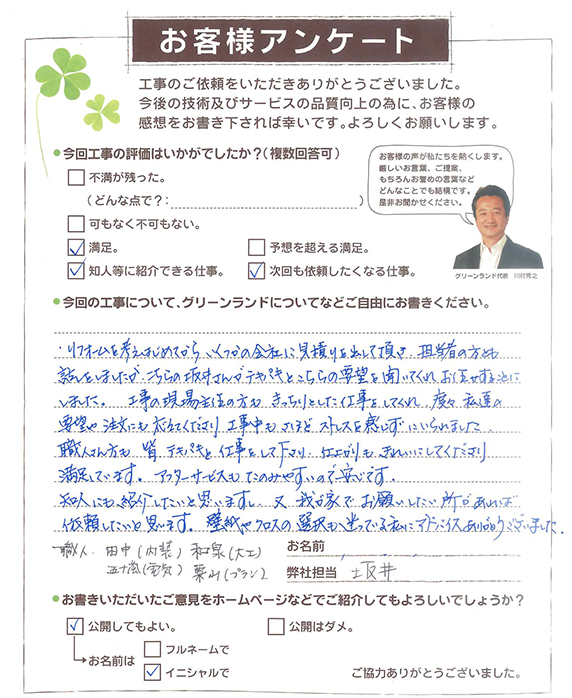 お客様アンケート
工事のご依頼をいただきありがとうございました。
今後の技術及びサービスの品質向上の為に、お客様の
感想をお書き下されば幸いです。よろしくお願いします。
●今回工事の評価はいかがでしたか？（複数回答可）
不満が残った。
（どんな点で？： ）
可もなく不可もない。
満足。
予想を超える満足。
知人等に紹介できる仕事。
次回も依頼したくなる仕事。
お客様の声が私たちを熱くします。
厳しいお言葉、ご提案、
もちろんお誉めの言葉など
どんなことでも結構です。
是非お聞かせください。
グリーンランド代表 川村秀之
●今回の工事について、グリーンランドについてなどご自由にお書きください。
・リフォームを考えはじめてから いくつかの会社に見積りを出して頂き、担当者の方とも
話をしましたが こちらの坂井さんがテキパキとこちらの要望を聞いてくれ お任せすることに
しました。 工事の現場主任の方も きっちりとした仕事をしてくれ 度々 私達の
要望や注文にも応えてくださり 工事中も さほど ストレスを感じずにいられました
職人さん方も 皆 テキパキと仕事をして下さり 仕上がりも きれいにしてくださり
満足しています。アフターサービスも たのみやすいので 安心です。
知人にも紹介したいと思いますし 又 我が家で お願いしたい所があれば
依頼したいと思います。壁紙やクロスの選択も 迷っている私にアドバイスありがとうございました.
職人. 田中(内装) 和泉(大工)
五十嵐(電気) 葉山(プラン)
お名前
弊社担当 坂井
●お書きいただいたご意見をホームページなどでご紹介してもよろしいでしょうか？
公開してもよい。
公開はダメ。
お名前は
フルネームで
イニシャルで
ご協力ありがとうございました。